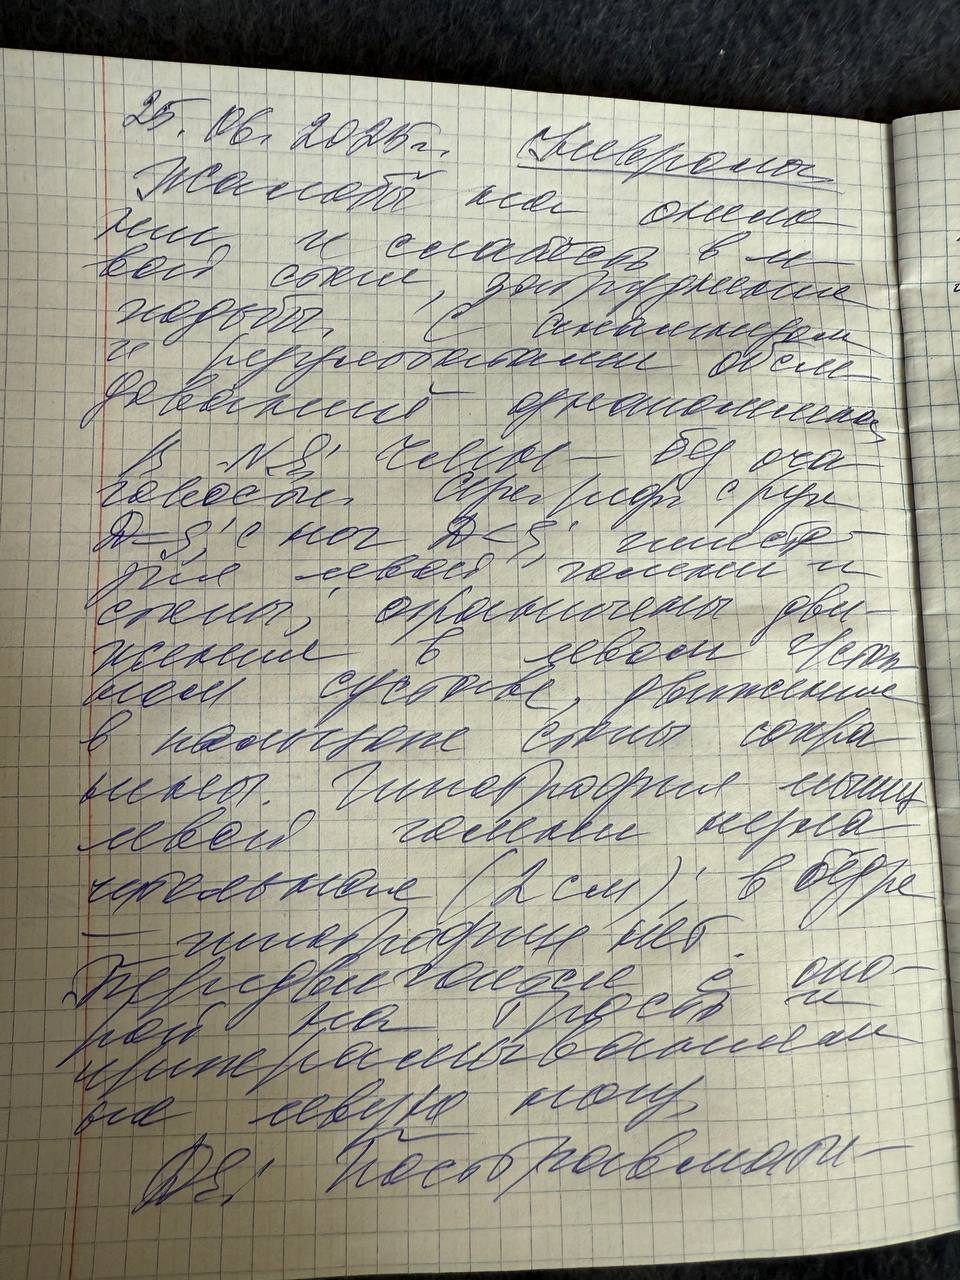 25. 06. 2025г. Невролог
Жалобы на онеме
ние и слабость в ле-
вой стопе, затруднение
ходьбы. С анамнезом
и результатами обсле
дований ознакомлена
В N.S: ЧМН – без оча
говости. Сух. рефл с рук
D=S; с ног D<S; гипест-
зия левой голени и
стопы; ограничены дви-
жения в левом
ном суставе, движение
в пальцах стопы сохра
нены. Гипотрофия мышц
левой голени незна
чительная (2 см); в бедре
– гипотрофии нет.
Передвигается с опо-
рой на трость и
прихрамыванием
на левую ногу
DS: Посттравмати-